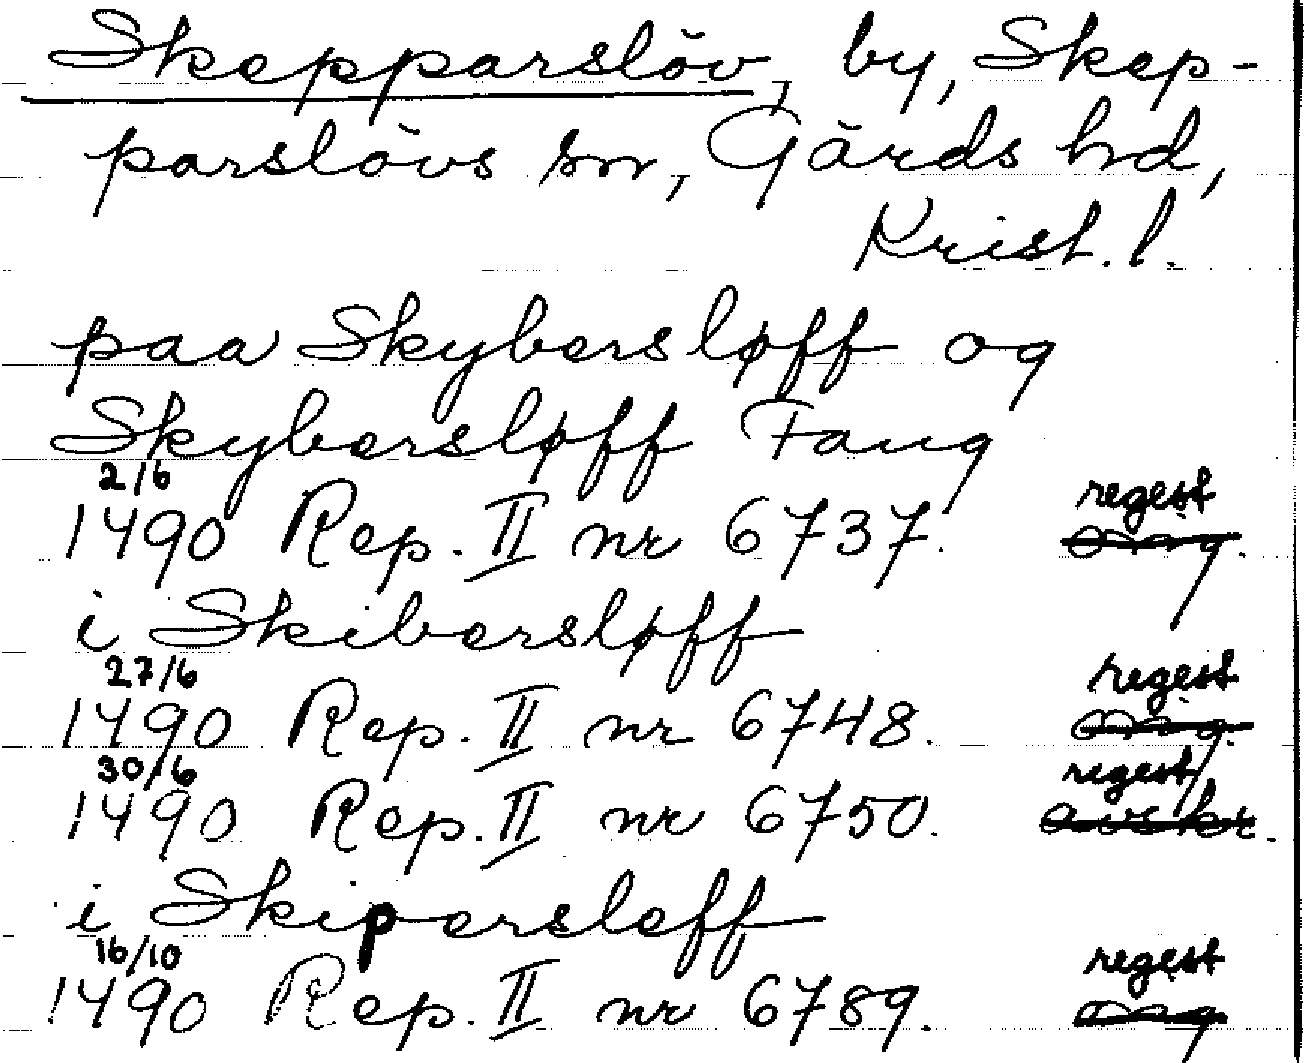 Skepparslöv, by, Skep-
parslövs sn, Gärds hd,
Krist. l.
paa Skybersløff og
Skybersløff Fang
2/6
1490 Rep. II nr 6737. regest
i Skibersløff
27/6
1490 Rep. II nr 6748. regest
30/6
1490 Rep. II nr 6750. regest
avskr.
i Skipersleff
16/10
1490 Rep. II nr 6789. regest